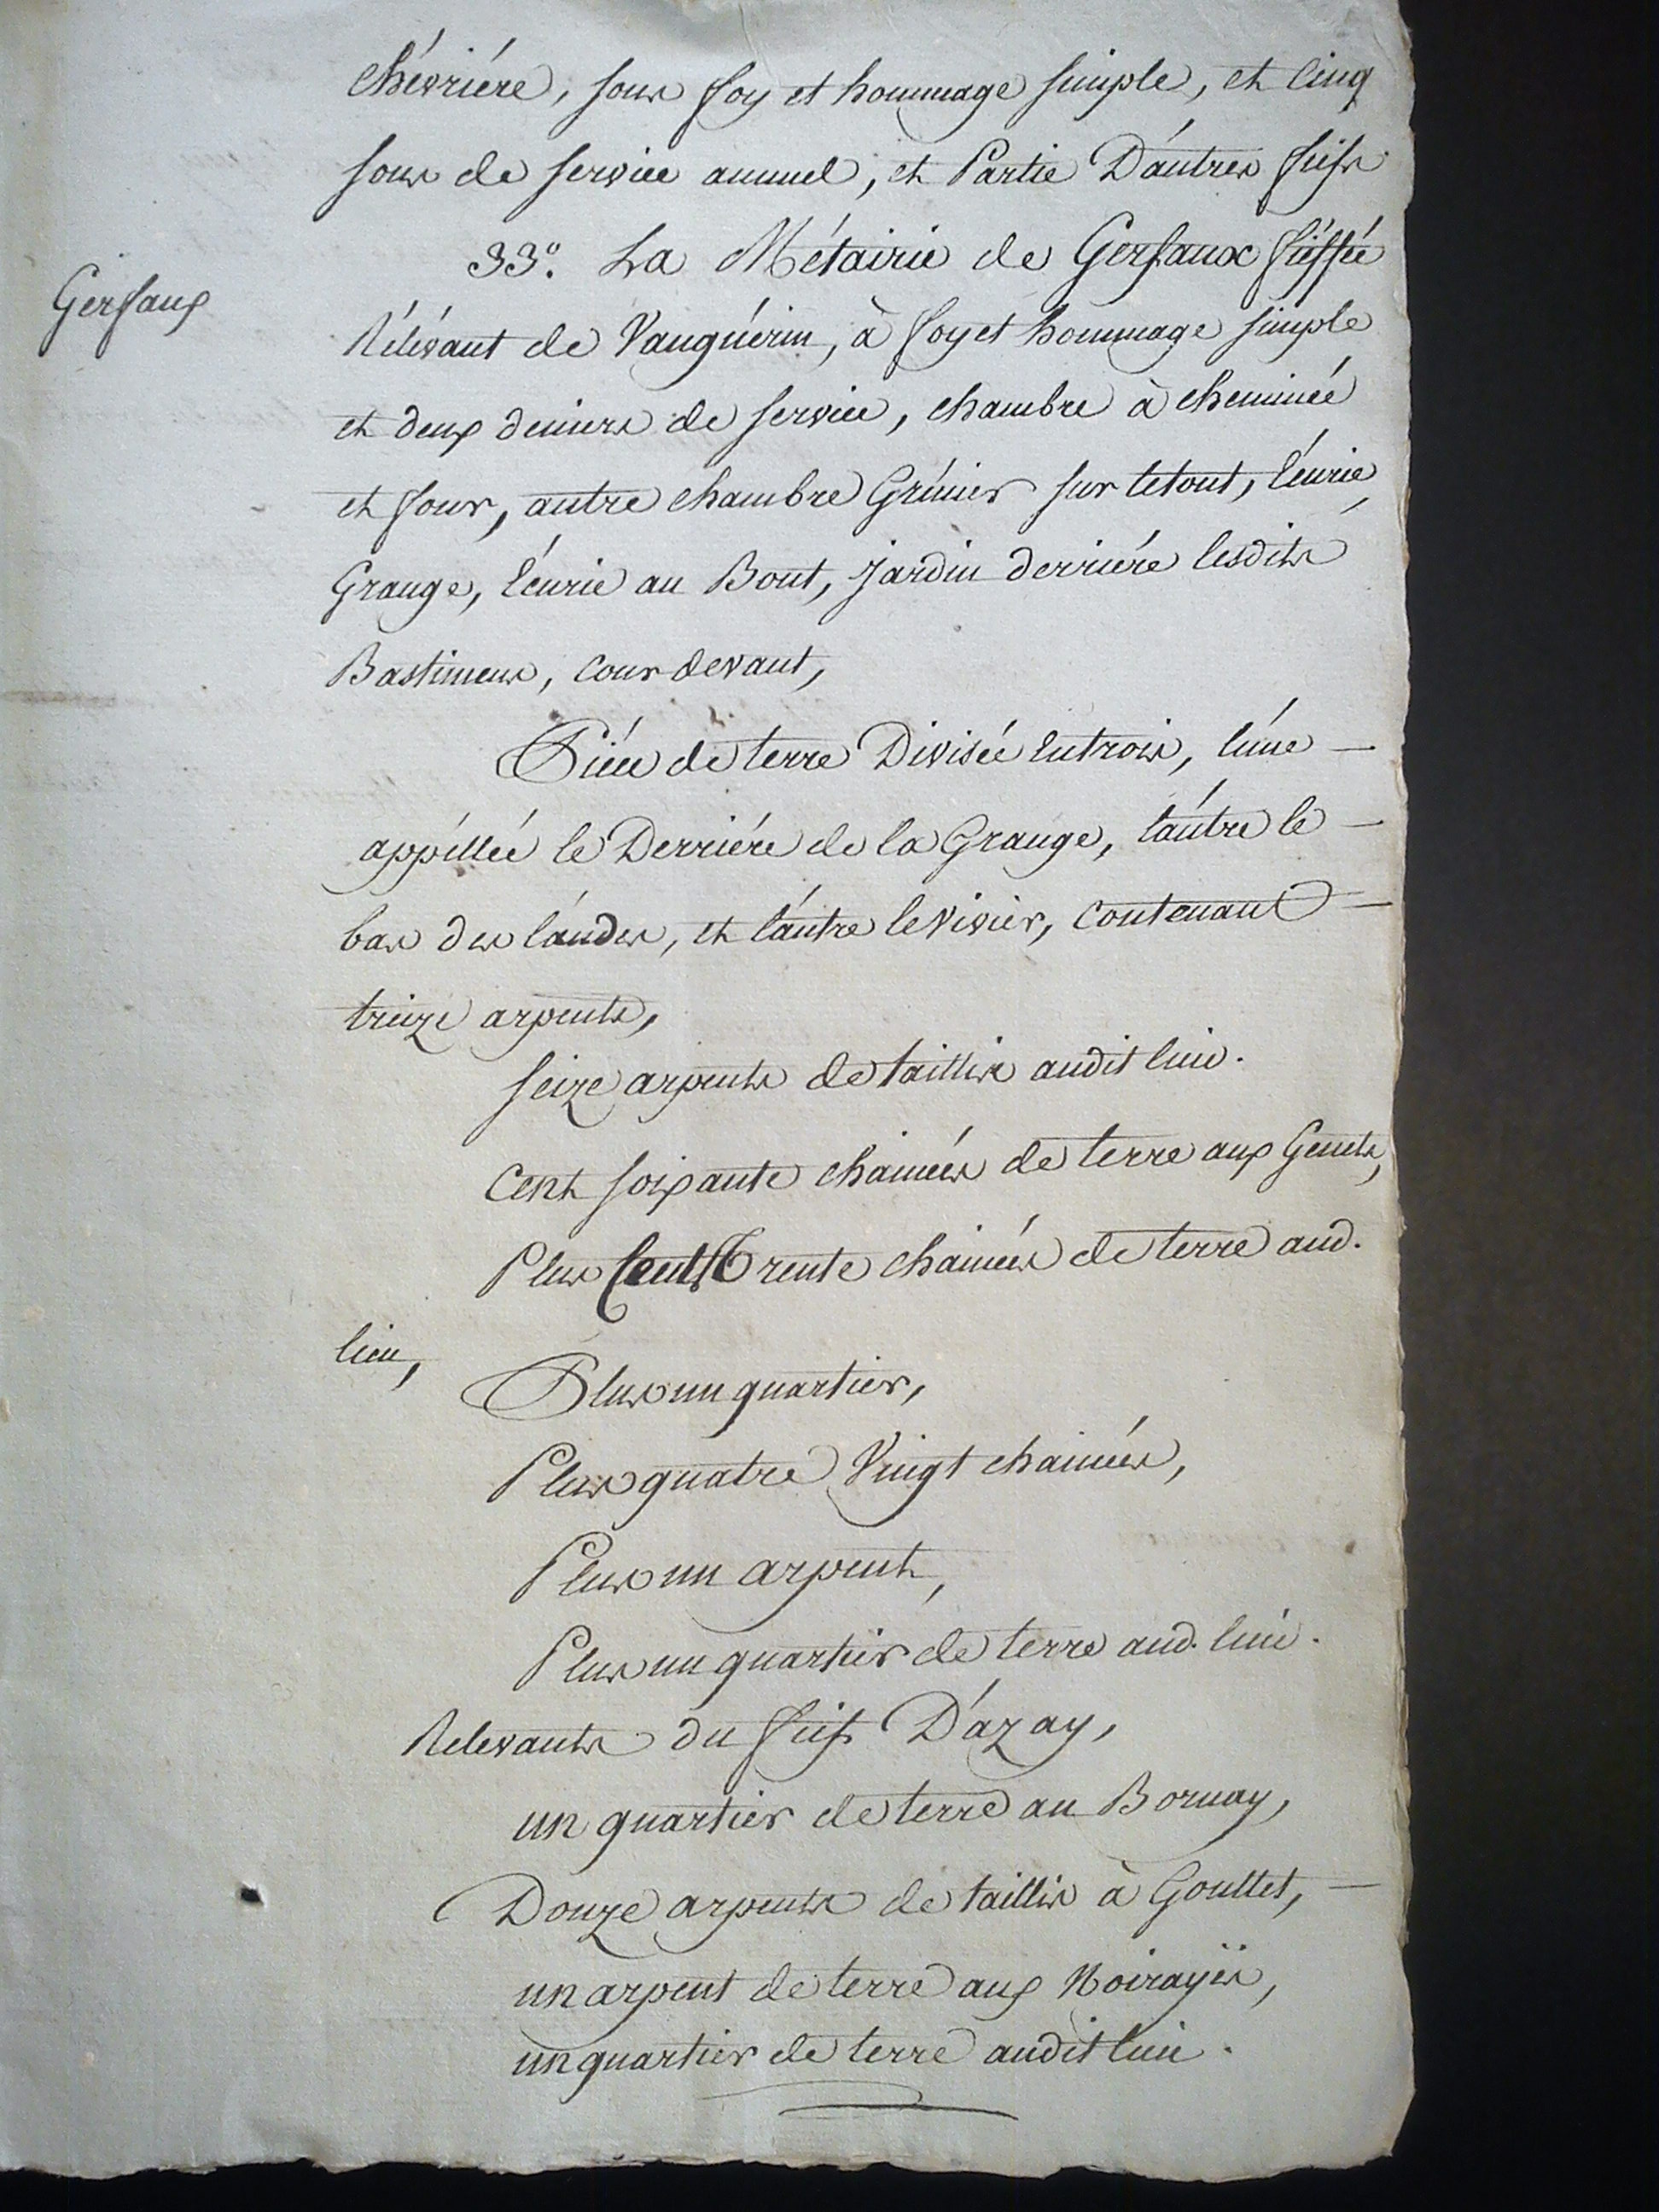 Chévriére, sous foy et hommage simple, et Cinq
sous de service annuel, et Partie D'autres fiefs
33º. La Métairie de Gerfaux fiéffée
Gerfaux
Rélévant de Vauguérin, à foy et hommage simple
et deux deniers de service, chambre à cheminée
et four, autre chambre Grénier sur letout, Ecurie,
Grange, Ecurie au Bout, jardin derriére lesdits
Bastimens, Cour devant,
Piéce de terre Divisée entrois, l'une
appéllée le Derriére de la Grange, l'autre le
bas des landes, et l'autre le Vivier, Contenant
treize arpents,
seize arpents de taillis audit lieu.
Cent soixante chainées de terre aux Genets,
Plus Cent Trente chainées de terre aud.
lieu,
Plus un quartier,
Plus quatre Vingt chainées,
Plus un arpent,
Plus un quartier de terre aud. lieu.
Relevants du fief D'azay,
un quartier de terre au Bornay,
Douze arpents de taillis à Goullet,
un arpent de terre aux Noirayës,
un quartier de terre audit lieu.